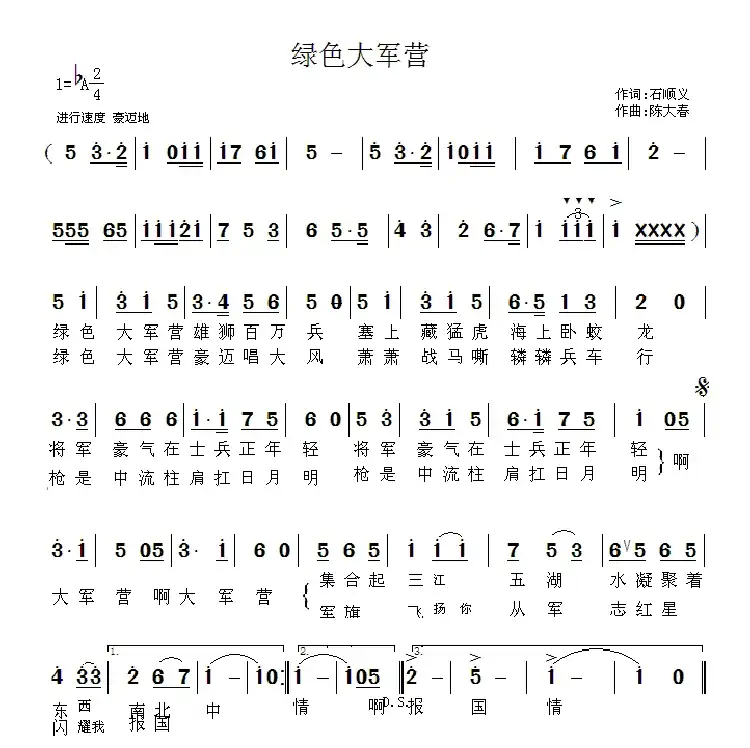 绿色大军营
1=♭A 2/4
作词:石顺义
作曲:陈大春
进行速度 豪迈地
( 5 3·2 | i 0ii | i7 6i | 5 – | 5 3·2 | i0ii | i 7 6 i | 2 – |
555 65 | iii2i | 7 5 3 | 6 5·5 | 4 3 | 2 6·7 | i iii | i xxxx )
3
5 i | 3 i 5 | 3·4 5 6 | 5 0 | 5 i | 3 i 5 | 6·5 1 3 | 2 0 |
绿色 大军营 雄狮百万 兵 塞上 藏猛虎 海上卧蛟 龙
绿色 大军营 豪迈唱大 风 萧萧 战马嘶 辚辚兵车 行
3·3 | 6 6 6 | i·i 7 5 | 6 0 | 5 3 | 6 6 6 | 6·i 7 5 | i 05 |
将军 豪气在 士兵正年 轻 将军 豪气在 士兵正年 轻
啊
枪是 中流柱 肩扛日月 明 枪是 中流柱 肩扛日月 明
3·i | 5 05 | 3·i | 6 0 | 5 6 5 | i i i | 7 5 3 | 6∨5 6 5 |
集合起 三江 五湖 水凝聚着
大军 营啊 大军 营
军旗 飞扬你 从军 志红星
1. 2. 3.
4 33 | 2 6 7 | i – | i0 :| i – | i05 | 2 – | 5 – | i – | i 0 |
东西 南北 中 情 啊报 国 情
D.S.
闪耀我 报国